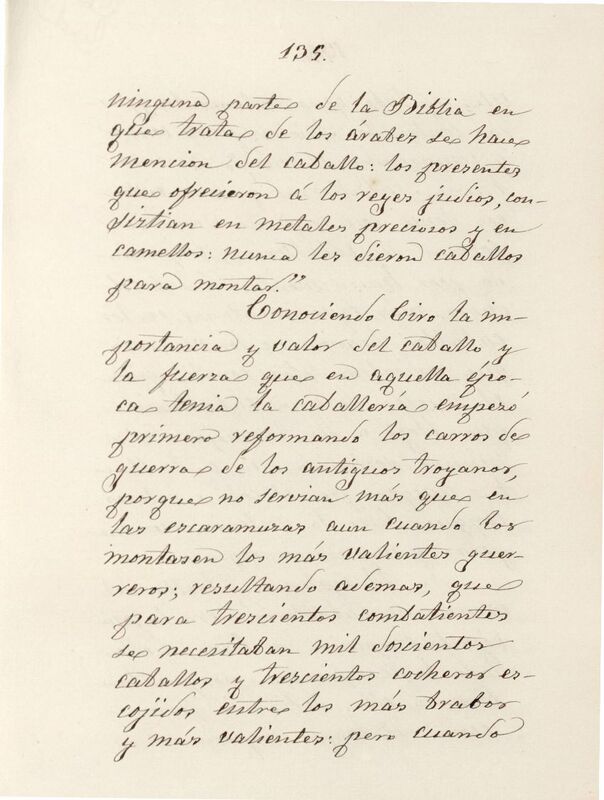 135.
ninguna parte de la Biblia en
que trata de los árabes se hace
mencion del caballo: los presentes
que ofrecieron á los reyes judios, con-
sistian en metales preciosos y en
camellos: nunca les dieron caballos
para montar."
Conociendo Ciro la im-
portancia y valor del caballo y
la fuerza que en aquella épo-
ca tenia la caballería empezó
primero reformando los carros de
guerra de los antiguos troyanos,
porque no servian más que en
las escaramuzas aun cuando los
montasen los más valientes guer-
reros; resultando ademas, que
para trescientos combatientes
se necesitaban mil doscientos
caballos y trescientos cocheros es-
cojidos entre los más brabos
y más valientes: pero cuando